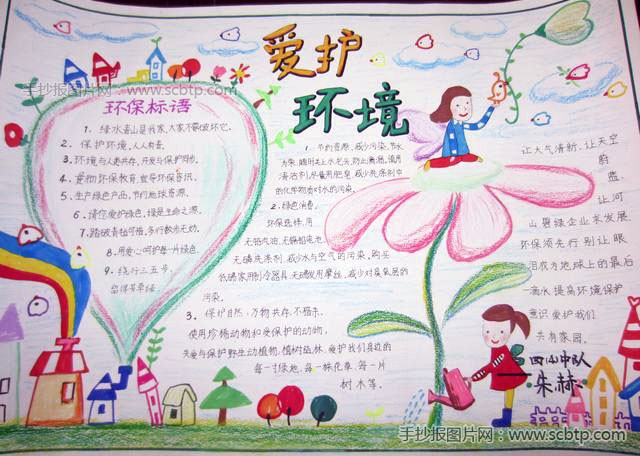 手抄报图片网：www.scbtp.com
爱护
环境
环保标语
1、绿水青山是我家,大家不要破坏它。
2、保护环境,人人有责。
3、环境与人类共存,开发与保护同步。
4、
环保教育,宣导环保意识。
5、生产绿色产品,节约地球资源。
6、请您爱护绿色,绿是生命之源。
7、踏破青毡可惜,多行数步无妨。
8、用爱心呵护每一片绿色。
9、绕行三五步,
留得芳草绿。
1、节约资源,减少污染。节水
为荣,随时关上水龙头,防止滴漏。慎用
清洁剂,尽量用肥皂,减少洗涤剂中
的化学物质对水的污染。
2、绿色消费。
环保选择,用
无铅汽油、无镉铅电池、
无磷洗涤剂,减少水与空气的污染。购买
低
家用制冷器具,无
发用摩丝,减少对臭氧层的
污染。
3、保护自然,万物共存,不猎杀、
使用珍稀动物和受保护的动物,
关爱与保护野生动植物。植树造林,爱护我们身边的
每一寸绿地、每一株花草、每一片
树木等。
让大气清新,让天
蔚
蓝,
让河
山碧绿企业求发展
环保须先行别让眼
泪成为地球上的最后
一滴水提高环境保护
意识爱护我们
共有家园。
四(4)中队
朱赫
手抄报图片网：www.scbtp.com